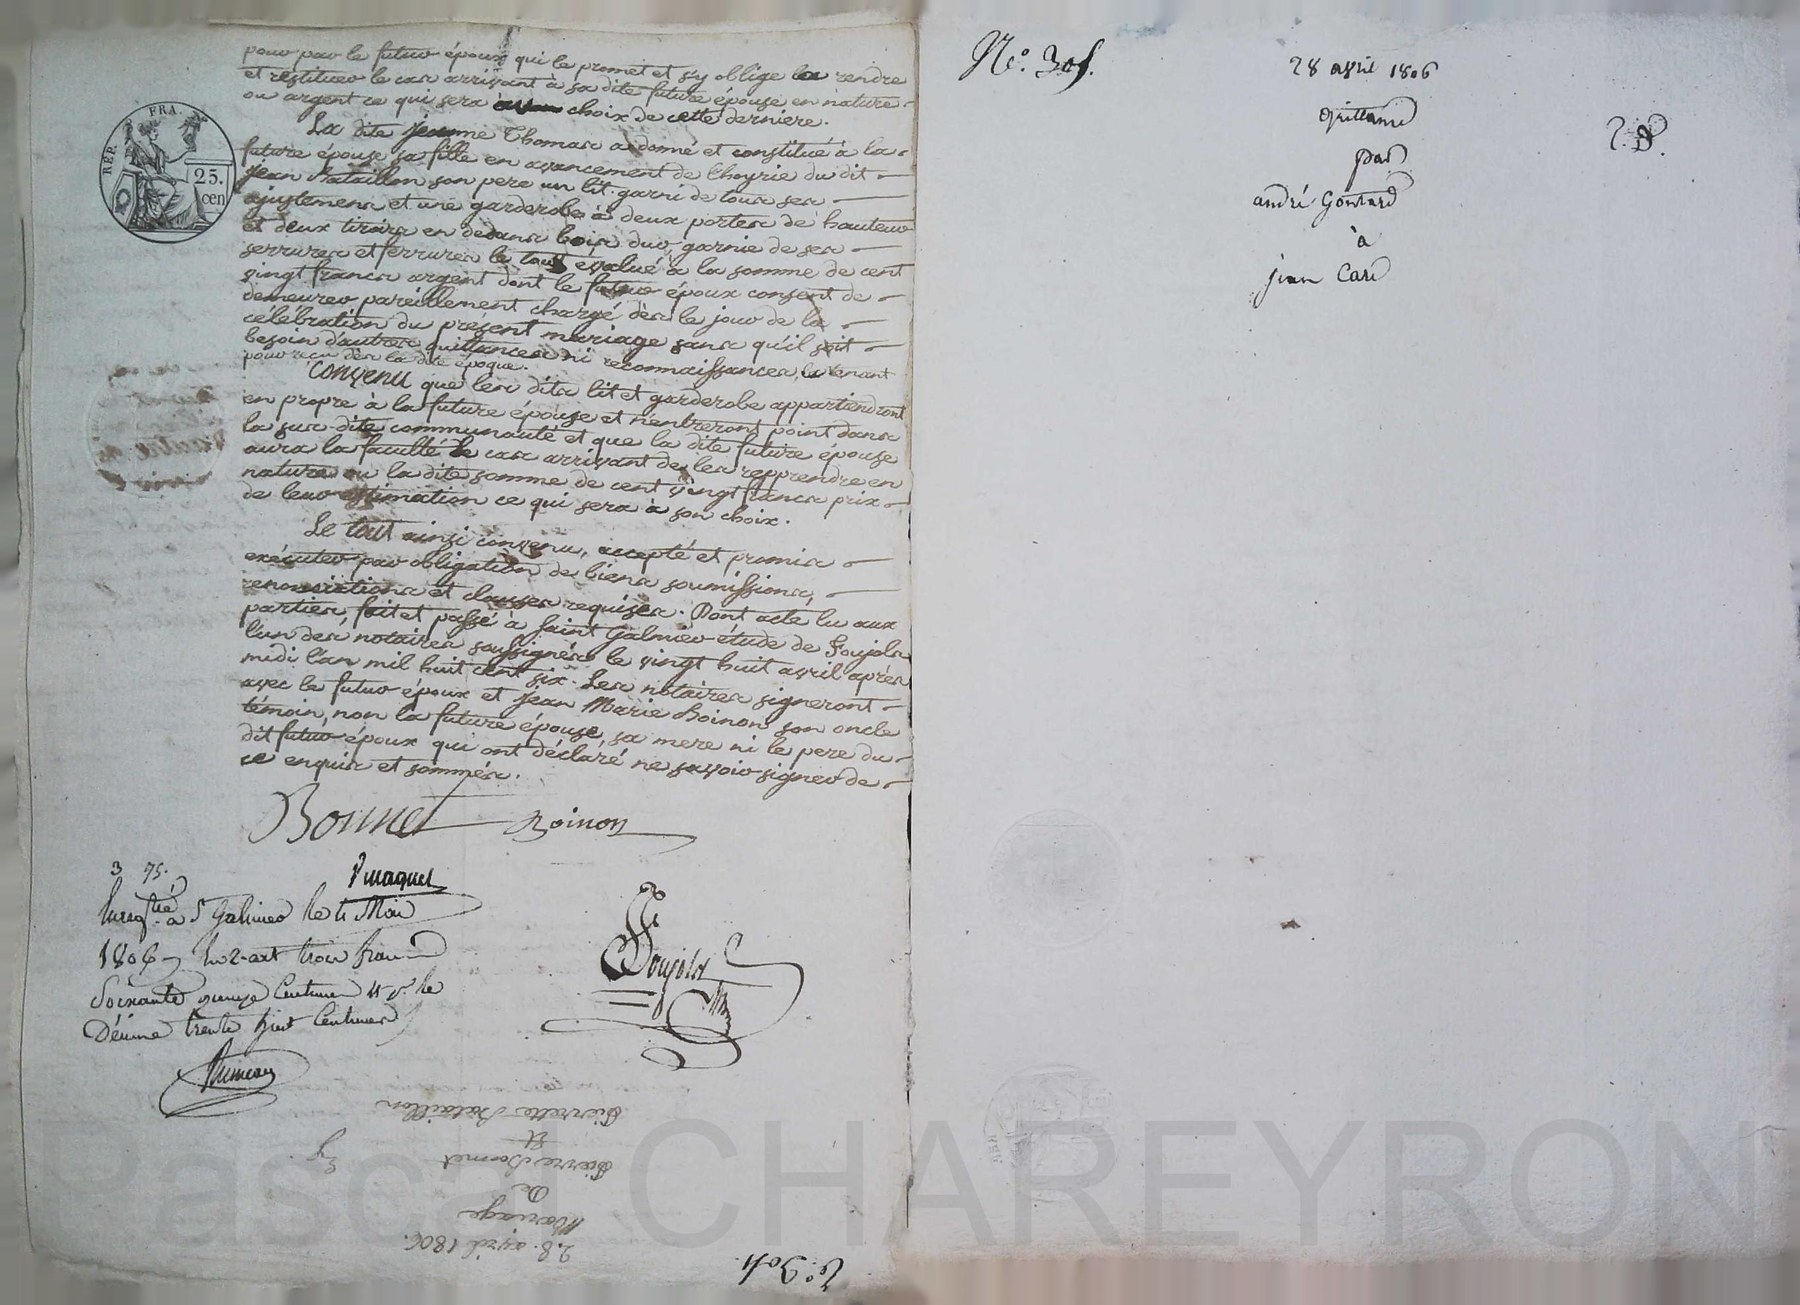 pour par le futur époux qui le promet et s'y oblige les rendre
et restituer le cas arrivant à sa dite future épouse en nature
ou argent ce qui sera choix de cette derniere.
La dite jeanne Thomas a donné et constitué à la
future épouse sa fille en avancement de l'hoyrie du dit
jean Bataillon son pere un lit garni de tous ses
ajustemens et une garderobe à deux portes de hauteur
et deux tiroirs en dedans bois dur, garnie de ses
serrures et ferrures le tout évalué à la somme de cent
vingt francs argent dont le futur époux consent de
demeurer pareillement chargé dès le jour de la
célébration du présent mariage sans qu'il soit
besoin d'autres quittances ni reconnaissances, les tenant
pour reçu dès la dite époque.
Convenu que les dits lit et garderobe appartiendront
en propre à la future épouse et n'entreront point dans
la sus-dite communauté et que la dite future épouse
aura la faculté le cas arrivant de les repprendre en
nature ou la dite somme de cent vingt francs prix
de leur estimation ce qui sera à son choix.
Le tout ainsi convenu, accepté et promis
exécuter par obligation de biens soumissions,
renonciations et clauses requises. Dont acte lu aux
parties, fait et passé à Saint Galmier étude de Foujols
l'un des notaires soussignés le vingt huit avril après
midi l'an mil huit cent six. Les notaires signeront
avec le futur époux et jean Marie Boinon son oncle
témoin, non la future épouse, sa mere ni le pere du
dit futur époux qui ont déclaré ne savoir signer de
ce enquis et sommés.
REP. FRA.
25.
cen
Bonnet Boinon
3 75.
Enregtré à St Galmier le 4 Mai
1806 trois francs
Soixante quinze Centimes
Décime trente huit Centimes
Foujols
28. avril 1806.
Mariage
De
Pierre Bonnet
Et
Pierrette Bataillon
No. 304.
No. 305.
28 avril 1806
Quittance
par
andré Gontard
à
jean Card
Pascal CHAREYRON